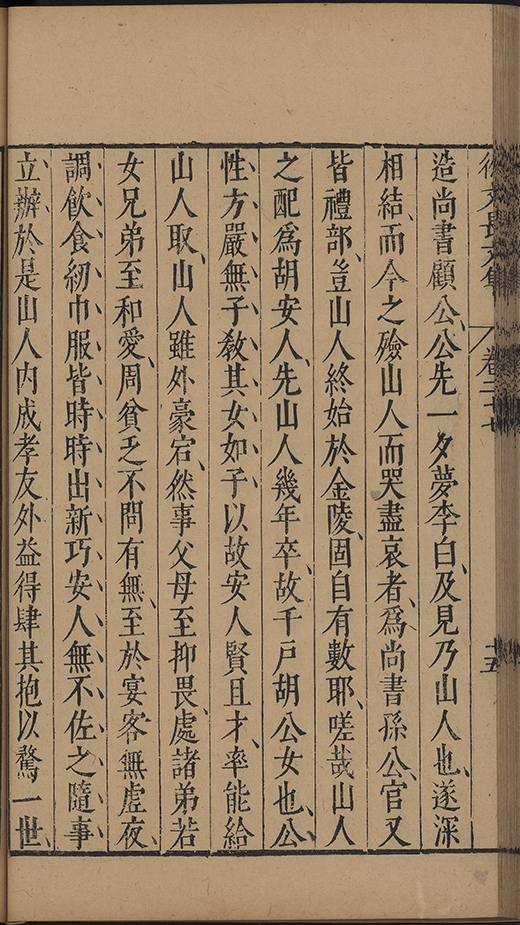 徐文長文集 卷二十七 十五
造尚書顧公、公先一夕夢李白、及見乃山人也、遂深
相結、而今之殮山人而哭盡哀者、爲尚書孫公、官又
皆禮部、豈山人終始於金陵、固自有數耶、嗟哉山人
之配爲胡安人、先山人幾年卒、故千戶胡公女也、公
性方嚴無子教其女如子以故安人賢且才、率能給
山人取、山人雖外豪宕、然事父母至抑畏、處諸弟若
女兄弟至和愛、周貧乏不問有無、至於宴客無虛夜、
調飲食紉巾服皆時時出新巧安人無不佐之隨事
立辦、於是山人内成孝友外益得肆其抱以驚一世、